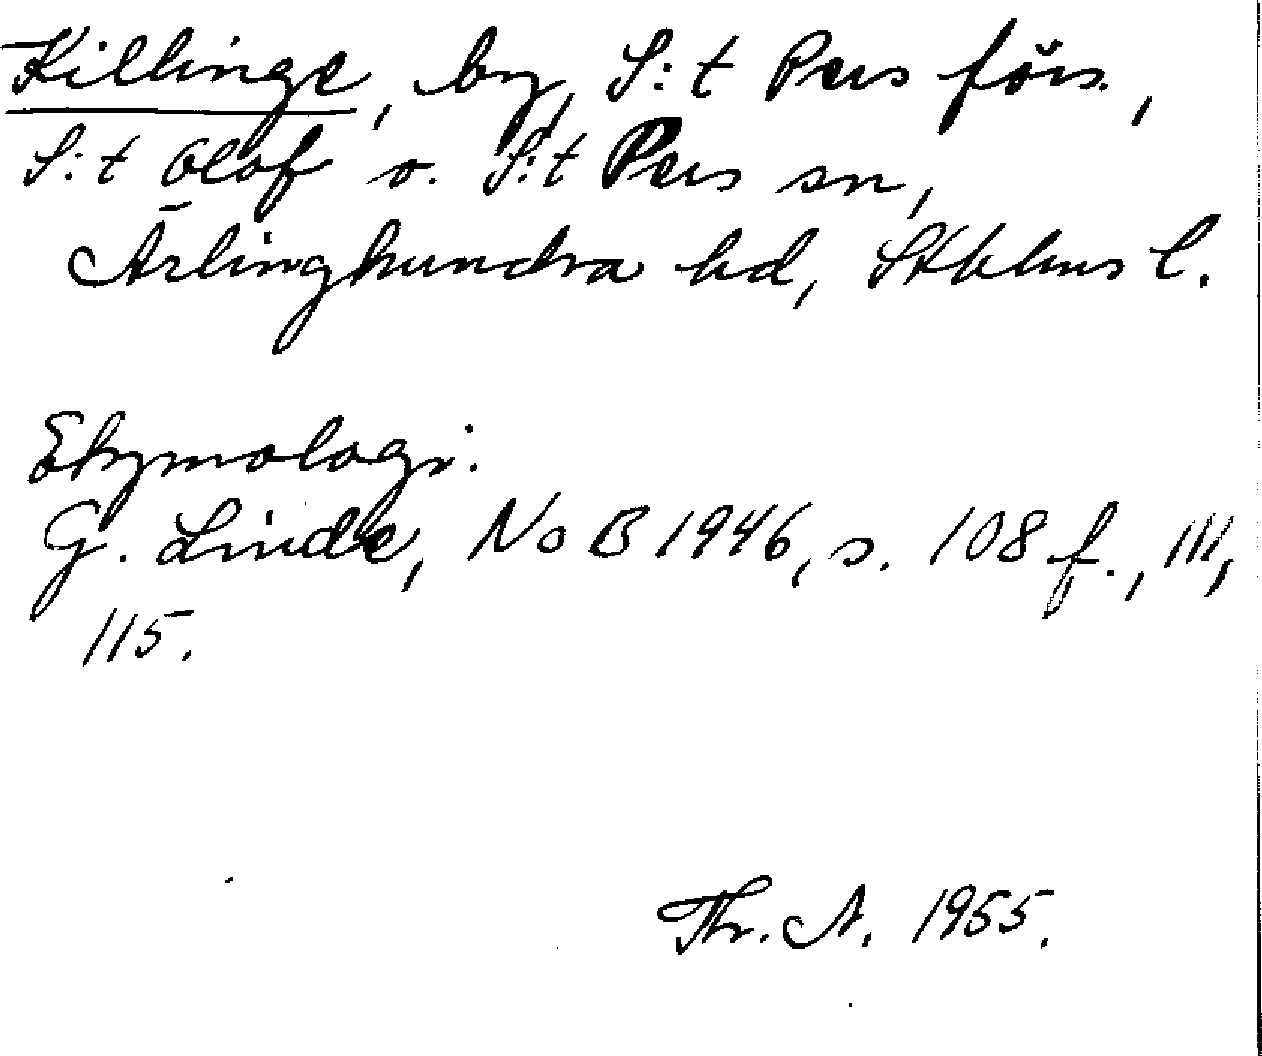 Killinge, by, S:t Pers förs.,
S:t Olof o. S:t Pers sn,
Ärlinghundra hd, Sthlms l.
Etymologi:
G. Linde, NoB 1946, s. 108 f., 111,
115.
Thr. A. 1955.